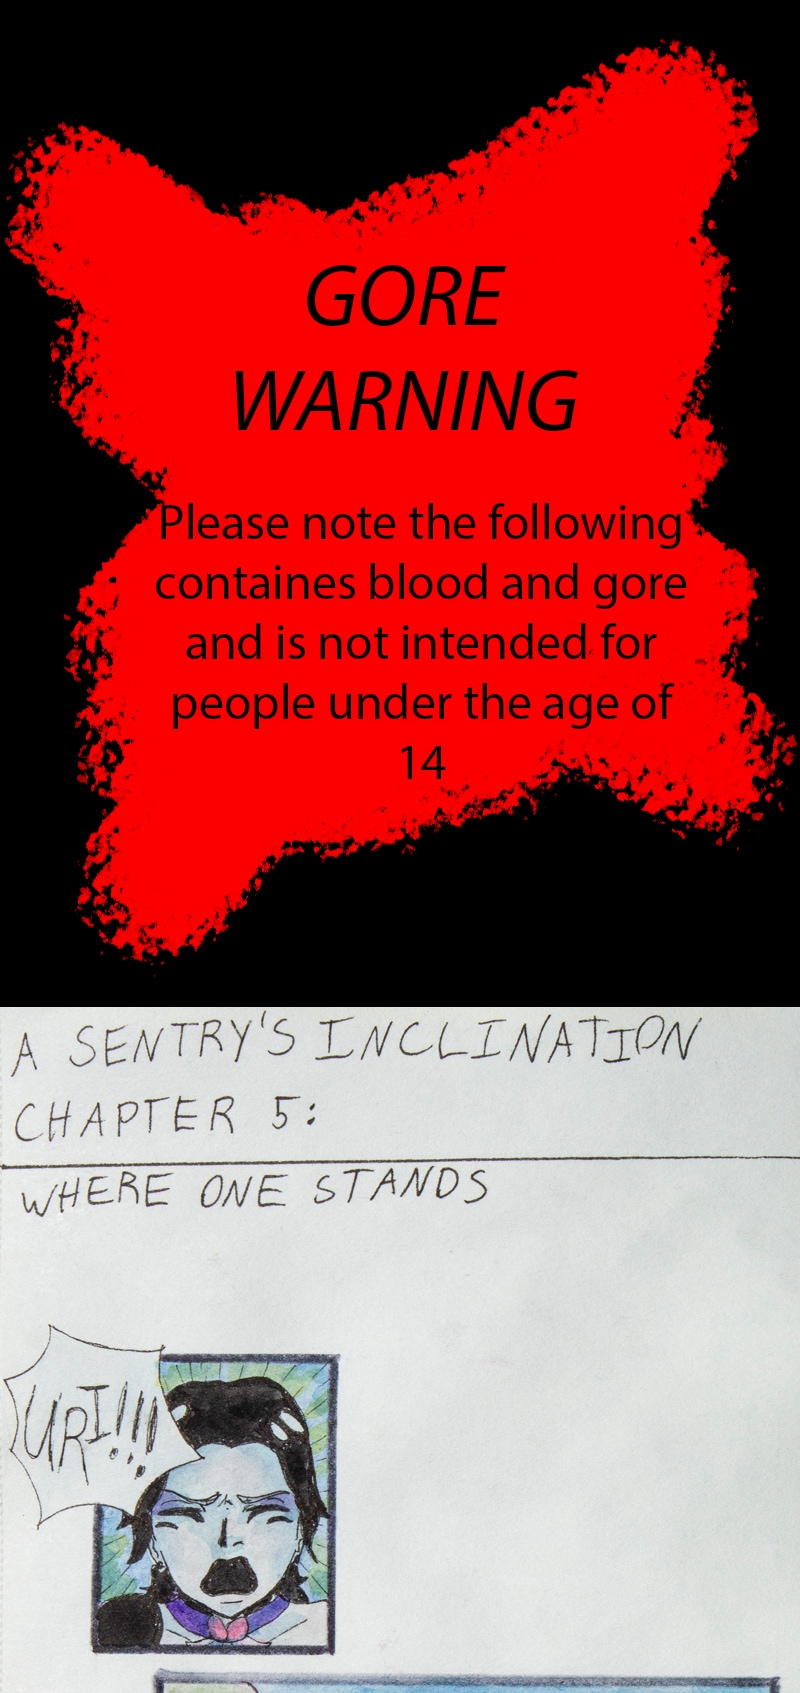 GORE
WARNING
Please note the following
containes blood and gore
and is not intended for
people under the age of
14
A SENTRY'S INCLINATION
CHAPTER 5:
WHERE ONE STANDS
URI!!!